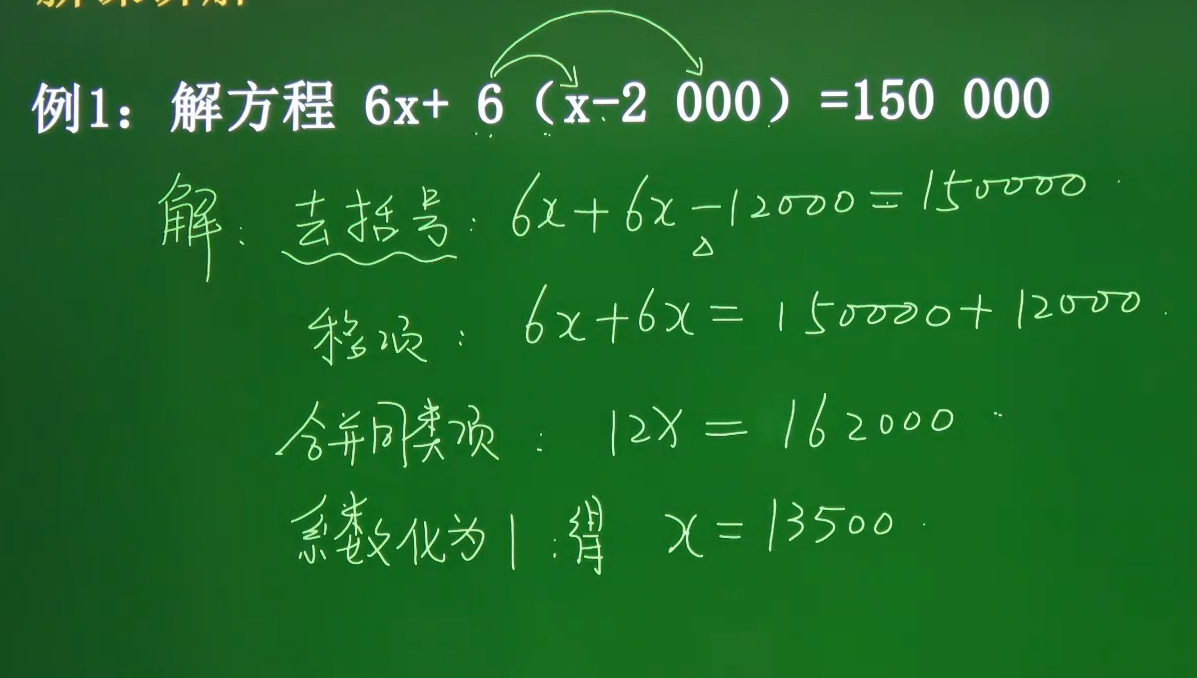 例1：解方程 6x+ 6（x-2 000）=150 000
解：去括号：6x+6x-12000=150000
移项：6x+6x=150000+12000
合并同类项：12x=162000
系数化为1：得 x=13500